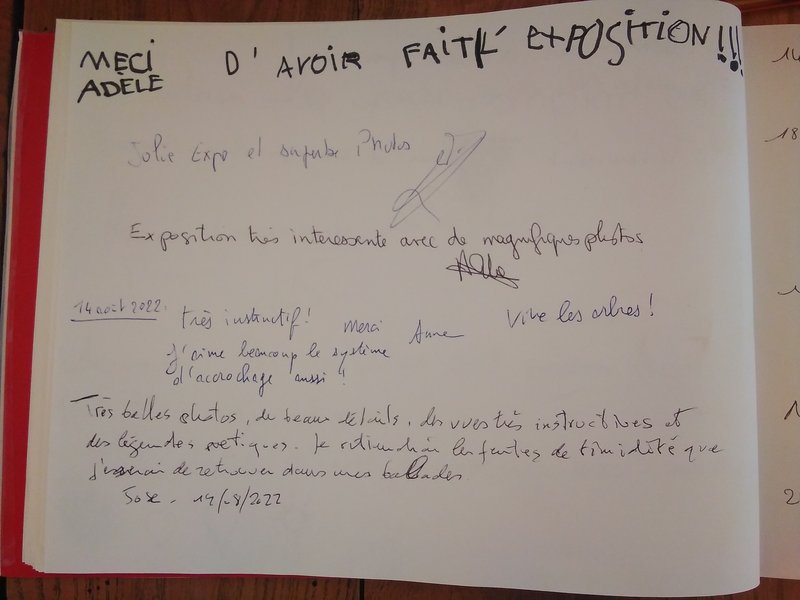 MECI D'AVOIR FAIT L'EXPOSITION!!!
ADÈLE
Jolie Expo et superbe Photos
Exposition très interessente avec de magnifiques photos
14 août 2022.
très instructif! Merci Anne Vive les arbres!
J'aime beaucoup le système
d'accrochage aussi!
Très belles photos, de beaux détails, des vues très instructives et
des légendes poétiques. Je retiendrai les fentes de timidité que
j'essaierai de retrouver dans mes ballades.
14/08/2022
14
18
1
1
2